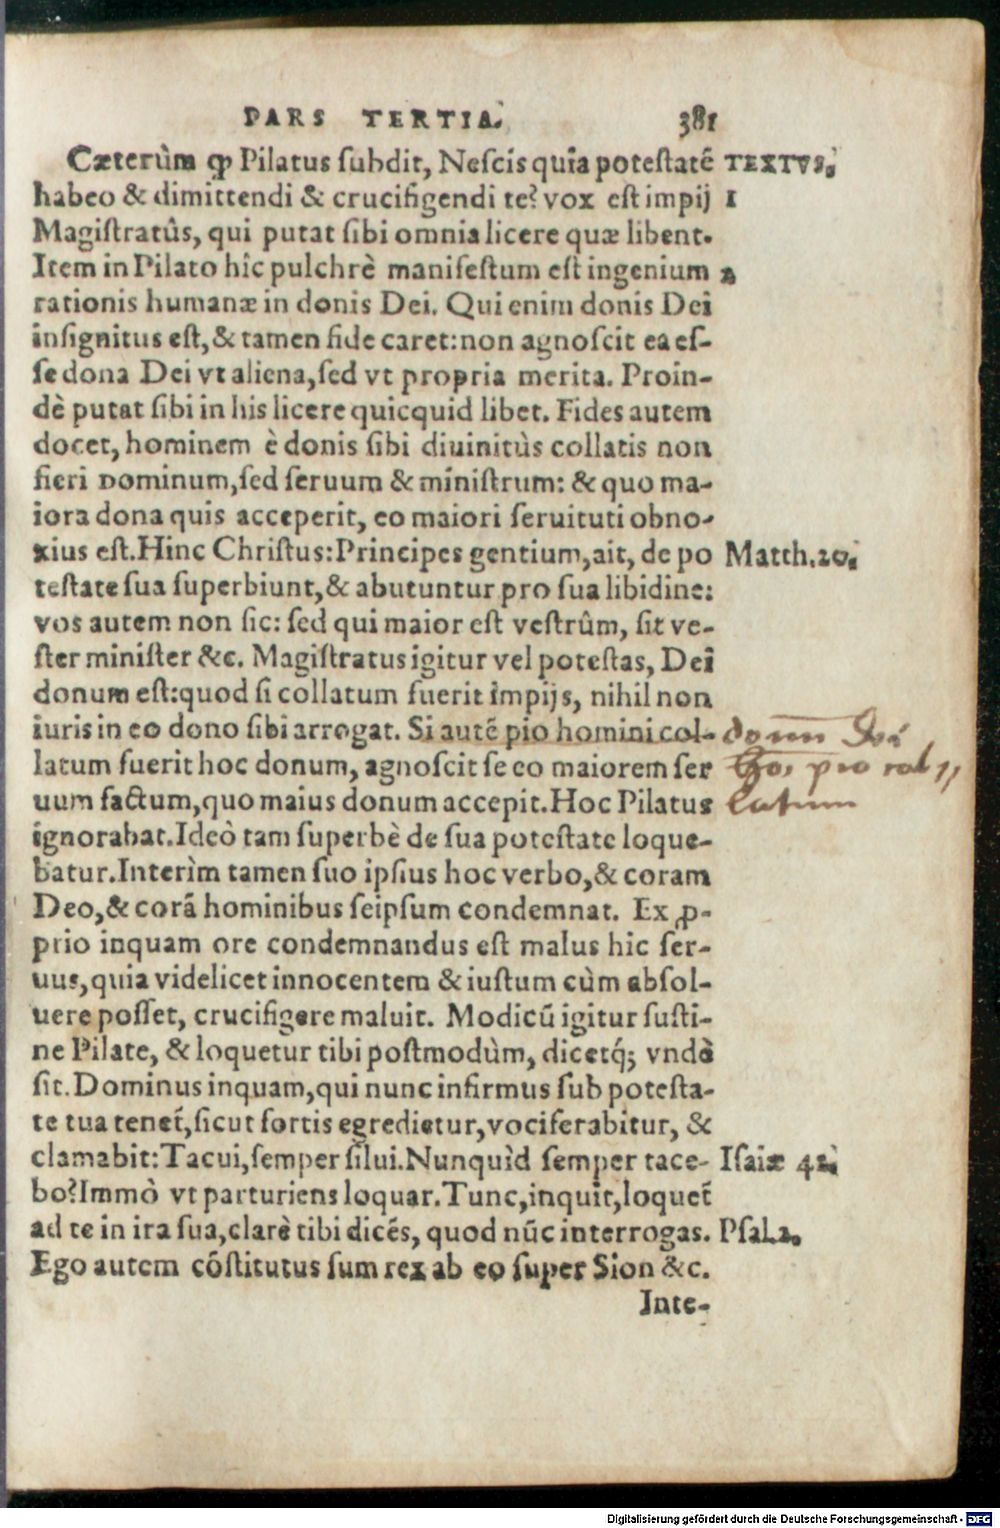 PARS TERTIA. 381
Cæterùm ꝙ Pilatus subdit, Nescis quia potestatē TEXTVS.
habeo & dimittendi & crucifigendi te? vox est impij 1
Magistratûs, qui putat sibi omnia licere quæ libent.
Item in Pilato hîc pulchrè manifestum est ingenium 2
rationis humanæ in donis Dei. Qui enim donis Dei
insignitus est, & tamen fide caret: non agnoscit ea es-
se dona Dei vt aliena, sed vt propria merita. Proin-
dè putat sibi in his licere quicquid libet. Fides autem
docet, hominem è donis sibi diuinitùs collatis non
fieri Dominum, sed seruum & ministrum: & quo ma-
iora dona quis acceperit, eo maiori seruituti obno-
xius est. Hinc Christus: Principes gentium, ait, de po Matth. 20.
testate sua superbiunt, & abutuntur pro sua libidine:
vos autem non sic: sed qui maior est vestrûm, sit ve-
ster minister &c. Magistratus igitur vel potestas, Dei
donum est: quod si collatum fuerit impijs, nihil non
iuris in eo dono sibi arrogat. Si autē pio homini col- donum Dei
latum fuerit hoc donum, agnoscit se eo maiorem ser pio col
uum factum, quo maius donum accepit. Hoc Pilatus latum
ignorabat. Ideò tam superbè de sua potestate loque-
batur. Interìm tamen suo ipsius hoc verbo, & coram
Deo, & corā hominibus seipsum condemnat. Ex ꝓ-
prio inquam ore condemnandus est malus hic ser-
uus, quia videlicet innocentem & iustum cùm absol-
uere posset, crucifigere maluit. Modicū igitur susti-
ne Pilate, & loquetur tibi postmodùm, dicetq́; vndè
sit. Dominus inquam, qui nunc infirmus sub potesta-
te tua tenet́, sicut fortis egredietur, vociferabitur, &
clamabit: Tacui, semper silui. Nunquìd semper tace- Isaiæ 42.
bo? Immò vt parturiens loquar. Tunc, inquit, loquet́
ad te in ira sua, clarè tibi dicēs, quod nūc interrogas. Psal. 2.
Ego autem cōstitutus sum rex ab eo super Sion &c.
Inte-
Digitalisierung gefördert durch die Deutsche Forschungsgemeinschaft - DFG